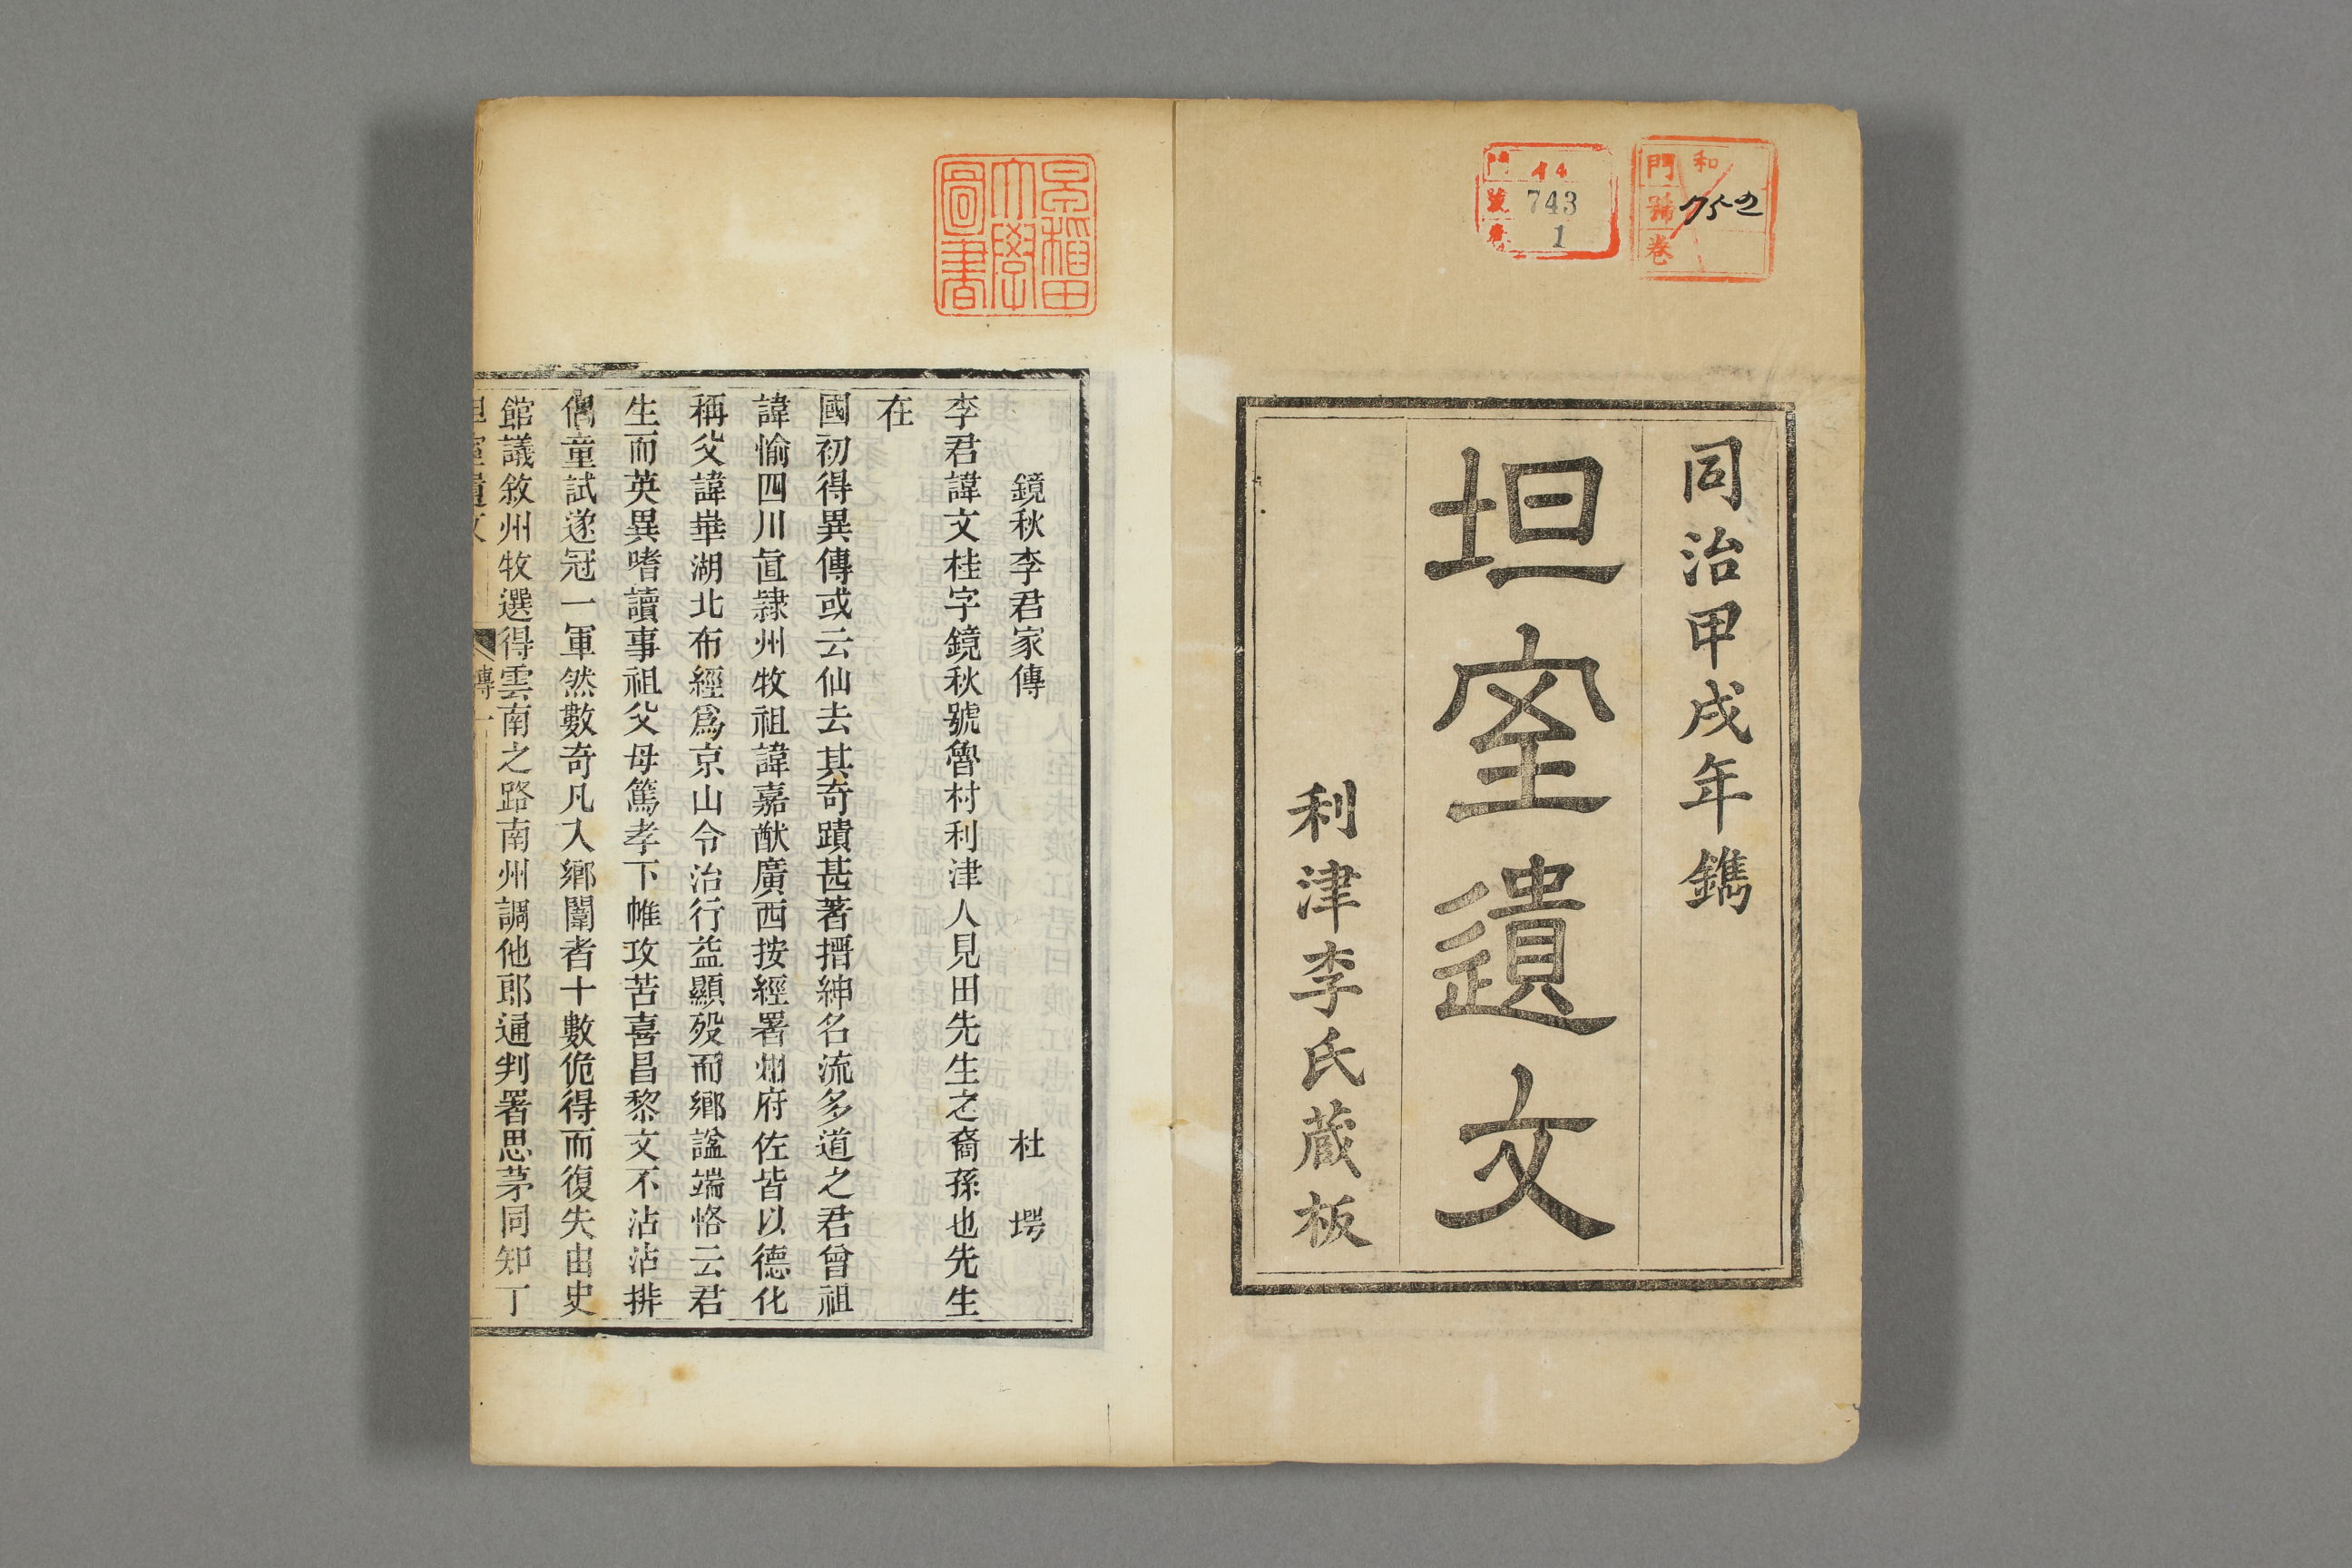 門 和
號 752
卷
門 14
號 743
卷 1
同治甲戌年鐫
坦室遺文
利津李氏蔵板
早稲田大學圖書
鏡秋李君家傳 杜堮
李君諱文桂字鏡秋號魯村利津人見田先生之裔孫也先生
在
國初得異傳或云仙去其奇蹟甚著搢紳名流多道之君曾祖
諱愉四川直隷州牧祖諱嘉猷廣西按經署州府佐皆以德化
稱父諱崋湖北布經爲京山令治行益顯殁而鄉諡端恪云君
生而英異嗜讀事祖父母篤孝下帷攻苦喜昌黎文不沾沾排
偶童試遂冠一軍然數奇凡入鄉闈者十數佹得而復失由史
館議敘州牧選得雲南之路南州調他郎通判署思茅同知丁
坦室遺文 傳 一